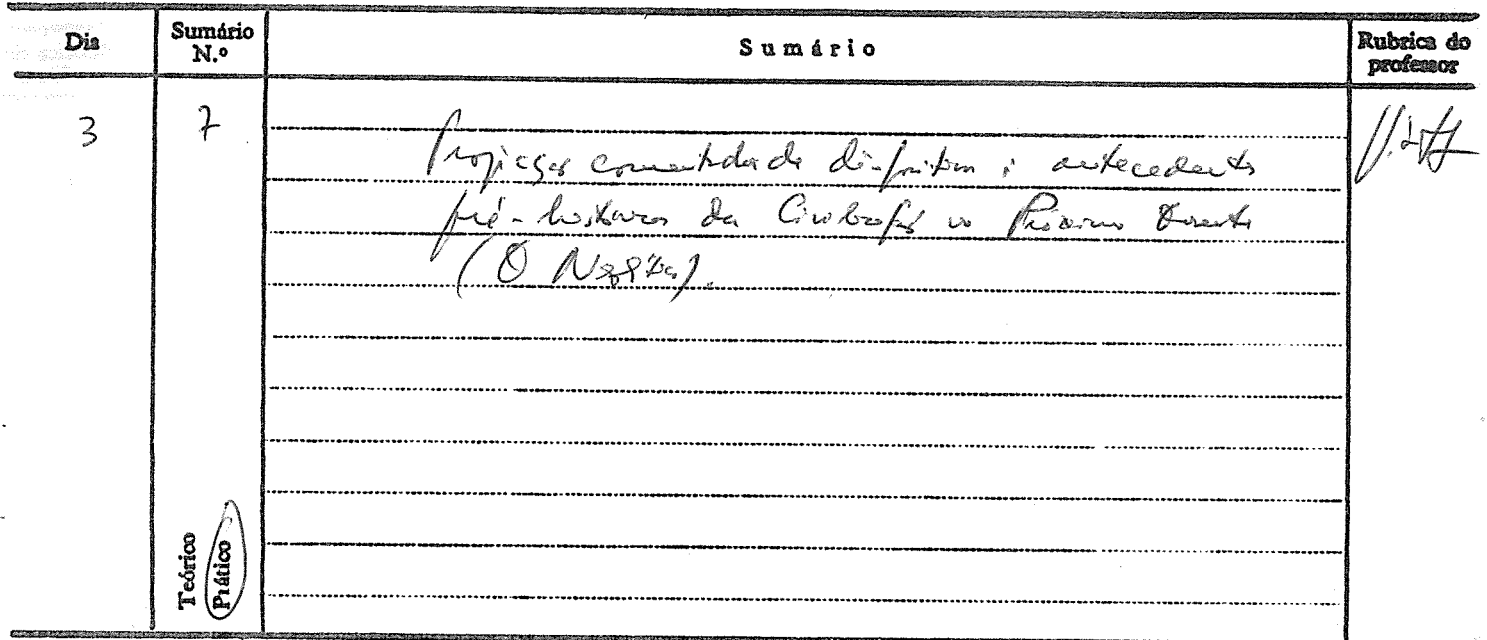 Dia
Sumário N.º
Sumário
Rubrica do professor
3
7
Projecção comentada de diapositivos: antecedentes
pré-históricos da Civilização no Próximo Oriente
(O Neolítico).
Teórico
Prático